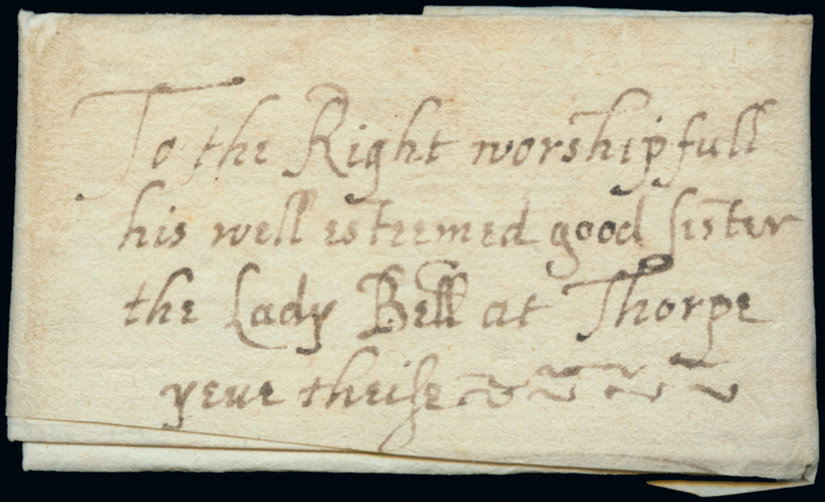 To the Right worshipfull
his well esteemed good sister
the Lady Bell at Thorpe
yeue theise